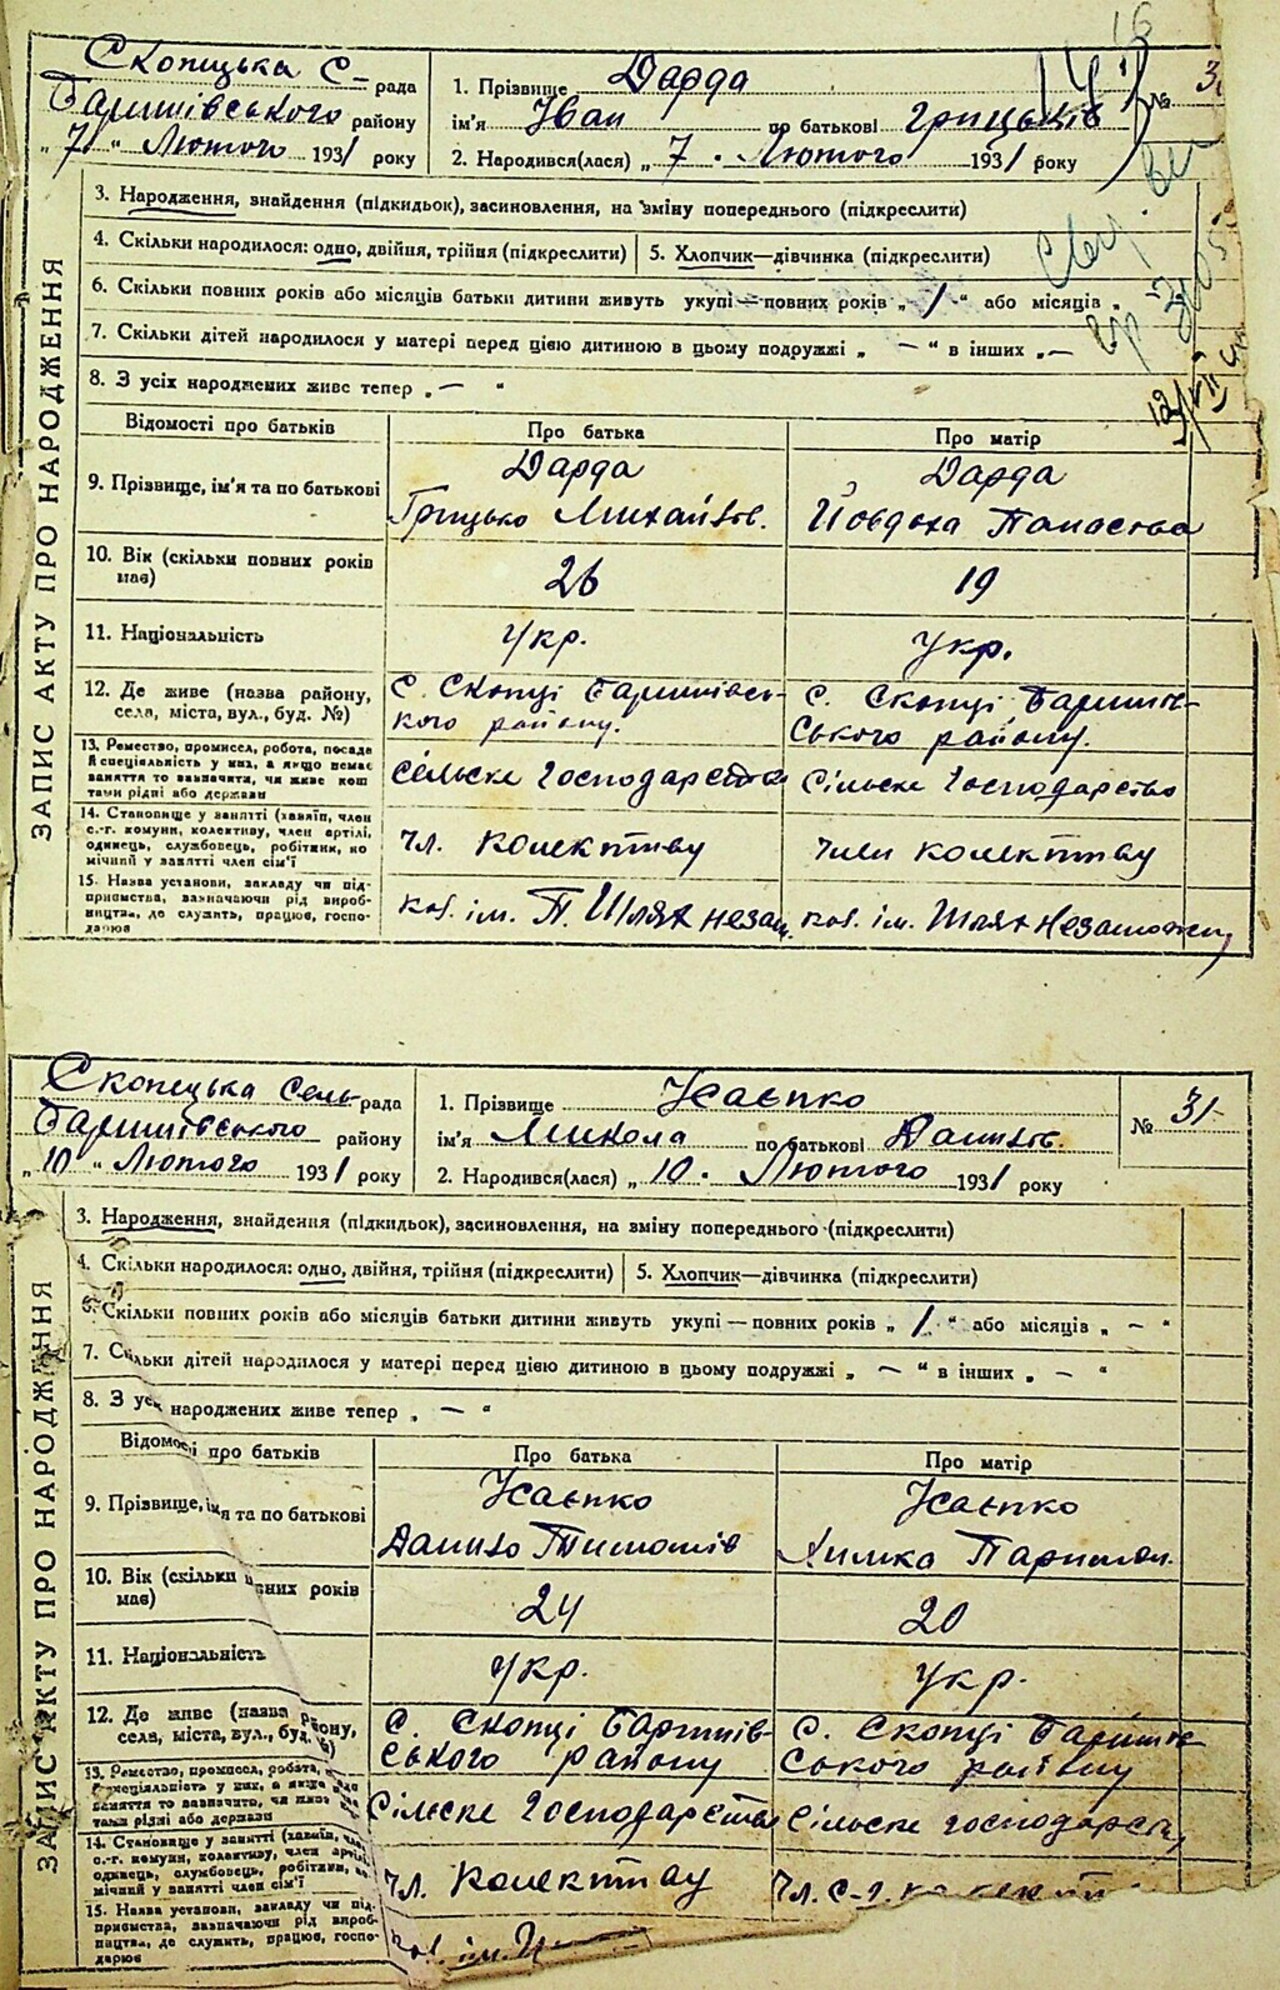 16
Скопецька С- рада
Баришівського району
„ 7 “ Лютого 1931 року
1. Прізвище Дарда
ім'я Іван по батькові Грицьків
№ 3
2. Народився(лася) „ 7 . Лютого 1931 року
ЗАПИС АКТУ ПРО НАРОДЖЕННЯ
3. Народження, знайдення (підкидьок), засиновлення, на зміну попереднього (підкреслити)
4. Скільки народилося: одно, двійня, трійня (підкреслити) 5. Хлопчик—дівчинка (підкреслити)
6. Скільки повних років або місяців батьки дитини живуть укупі — повних років „ 1 “ або місяців „
7. Скільки дітей народилося у матері перед цією дитиною в цьому подружжі „ — “ в інших „ —
8. З усіх народжених живе тепер „ — “
Відомості про батьків Про батька Про матір
9. Прізвище, ім'я та по батькові
Дарда Дарда
Грицько Михайлов. Йовдоха Панасова
10. Вік (скільки повних років має)
26 19
11. Національність Укр. Укр.
12. Де живе (назва району, села, міста, вул., буд. №)
С. Скопці Баришівсь-
кого району.
С. Скопці Баришів-
ського району.
13. Ремество, промисел, робота, посада
й спеціяльність у них, а якщо немає
заняття то зазначити, чи живе кош
тами рідні або держави
Сельске Господарство Сільске Господарство
14. Становище у занятті (хазяїн, член
с.-г. комуни, колективу, член артілі,
одинець, службовець, робітник, по
мічний у занятті член сім'ї
Чл. колективу Член колективу
15. Назва установи, закладу чи під-
приємства, зазначаючи рід вироб-
ництва, де служить, працює, госпо-
дарює
кол. ім. П. Шлях незам. кол. ім. Шлях Незаможн,
Скопецька Сель- рада
Баришівського району
„ 10 “ Лютого 1931 року
1. Прізвище Исаєнко
ім'я Микола по батькові Данилов.
№ 31
2. Народився(лася) „ 10 . Лютого 1931 року
ЗАПИС АКТУ ПРО НАРОДЖЕННЯ
3. Народження, знайдення (підкидьок), засиновлення, на зміну попереднього (підкреслити)
4. Скільки народилося: одно, двійня, трійня (підкреслити) 5. Хлопчик—дівчинка (підкреслити)
6. Скільки повних років або місяців батьки дитини живуть укупі — повних років „ 1 “ або місяців „ — “
7. Скільки дітей народилося у матері перед цією дитиною в цьому подружжі „ — “ в інших „ — “
8. З усіх народжених живе тепер „ — “
Відомості про батьків Про батька Про матір
9. Прізвище, ім'я та по батькові
Исаєнко Исаєнко
Данило Тимошів Химка
10. Вік (скільки повних років має)
24 20
11. Національність Укр. Укр.
12. Де живе (назва району, села, міста, вул., буд. №)
С. Скопці Баришів-
ського району
С. Скопці Баришів-
ського району
13. Ремество, промисел, робота,
й спеціяльність у них, а якщо
заняття то зазначити, чи живе
тами рідні або держави
Сільске Господарство Сільске господарст,
14. Становище у занятті (хазяїн, член
с.-г. комуни, колективу, член артілі,
одинець, службовець, робітник, по
мічний у занятті член сім'ї
Чл. Колективу Чл. с-г.
15. Назва установи, закладу чи під-
приємства, зазначаючи рід вироб-
ництва, де служить, працює, госпо-
дарює
кол. ім.